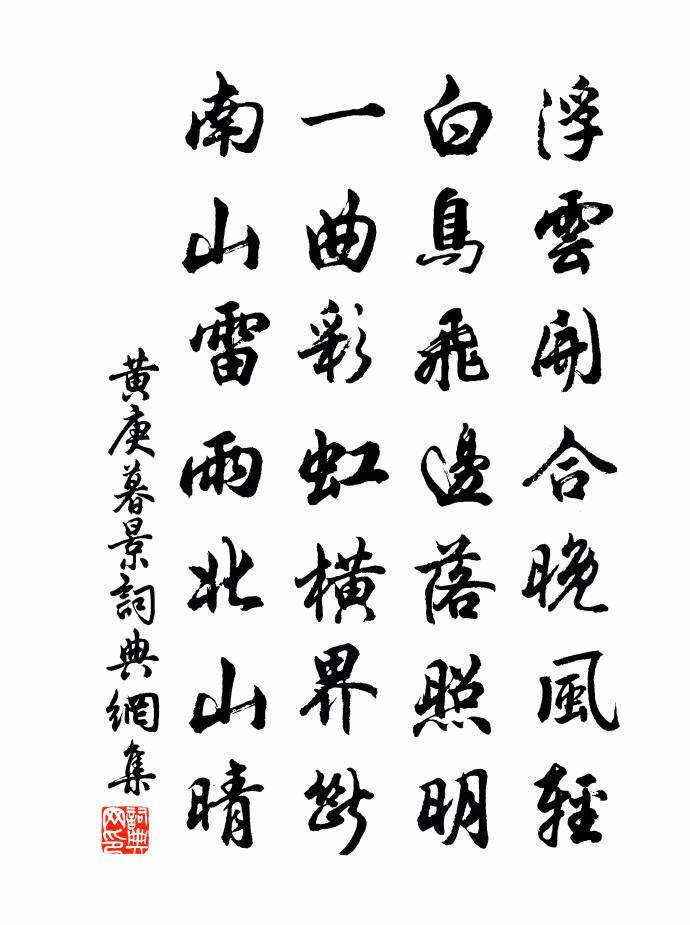 浮雲開合晚風輕
白鳥飛邊落照明
一曲彩虹橫界斷
南山雷雨北山晴
黃庚暮景詞典網集
詞典网印